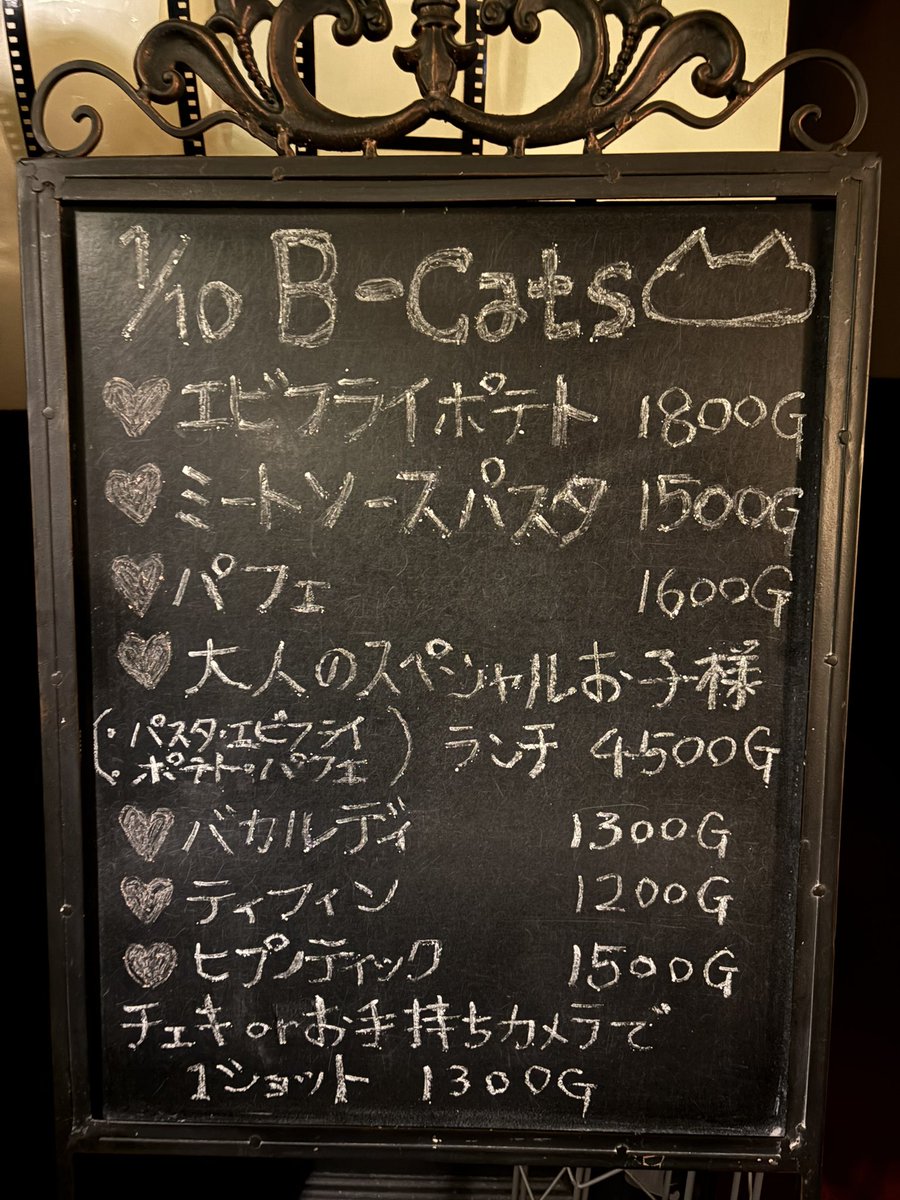 1/10 B-Cats
エビフライポテト 1800G
ミートソースパスタ 1500G
パフェ 1600G
大人のスペシャルお子様
(・パスタ・エビフライ
・ポテト・パフェ) ランチ 4500G
バカルディ 1300G
ティフィン 1200G
ヒプノティック 1500G
チェキorお手持ちカメラで
1ショット 1300G